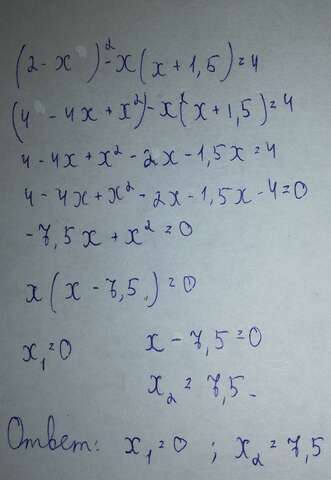 (2-x)²-x(x+1,5)=4
(4-4x+x²)-x(x+1,5)=4
4-4x+x²-2x-1,5x=4
4-4x+x²-2x-1,5x-4=0
-7,5x+x²=0
x(x-7,5)=0
x₁=0 x-7,5=0
x₂=7,5
Ответ: x₁=0; x₂=7,5